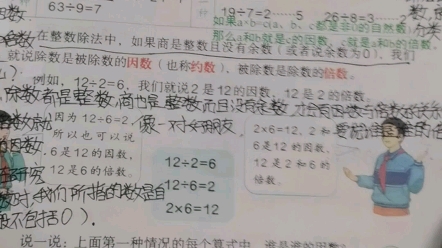 63÷9=7
19÷7=2……5 26÷8=3……2
如果a×b=c(a、b、c都是非0的自然数)
那么a和b就是c的因数，c就是a和b的倍数
在整数除法中，如果商是整数且没有余数（或者说余数为0），我们
就说除数是被除数的因数（也称约数），被除数是除数的倍数。
例如，12÷2=6，我们就说2是12的因数，12是2的倍数。
除数都是整数，商也是整数而且没有余数，
因为12÷6=2，
所以也可以说
6是12的因数，
12是6的倍数。
像一对好朋友，
12÷2=6
12÷6=2
2×6=12
2×6=12，2和
6是12的因数，
12是2和6的
倍数。
我们所指的数是自
不包括0）.
说一说：上面第一种情况的每个算式中，谁是谁的因数